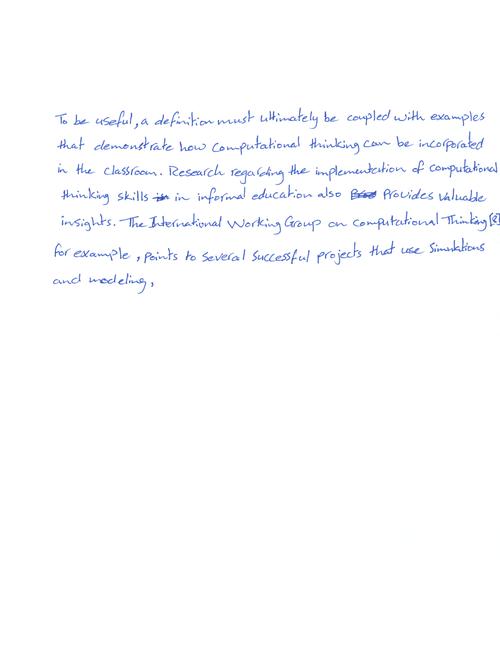 To be useful, a definition must ultimately be coupled with examples
that demonstrate how computational thinking can be incorporated
in the classroom. Research regarding the implementation of computational
thinking skills in in informal education also provides valuable
insights. The International Working Group on computational Thinking [8]
for example, points to several successful projects that use simulations
and modeling,